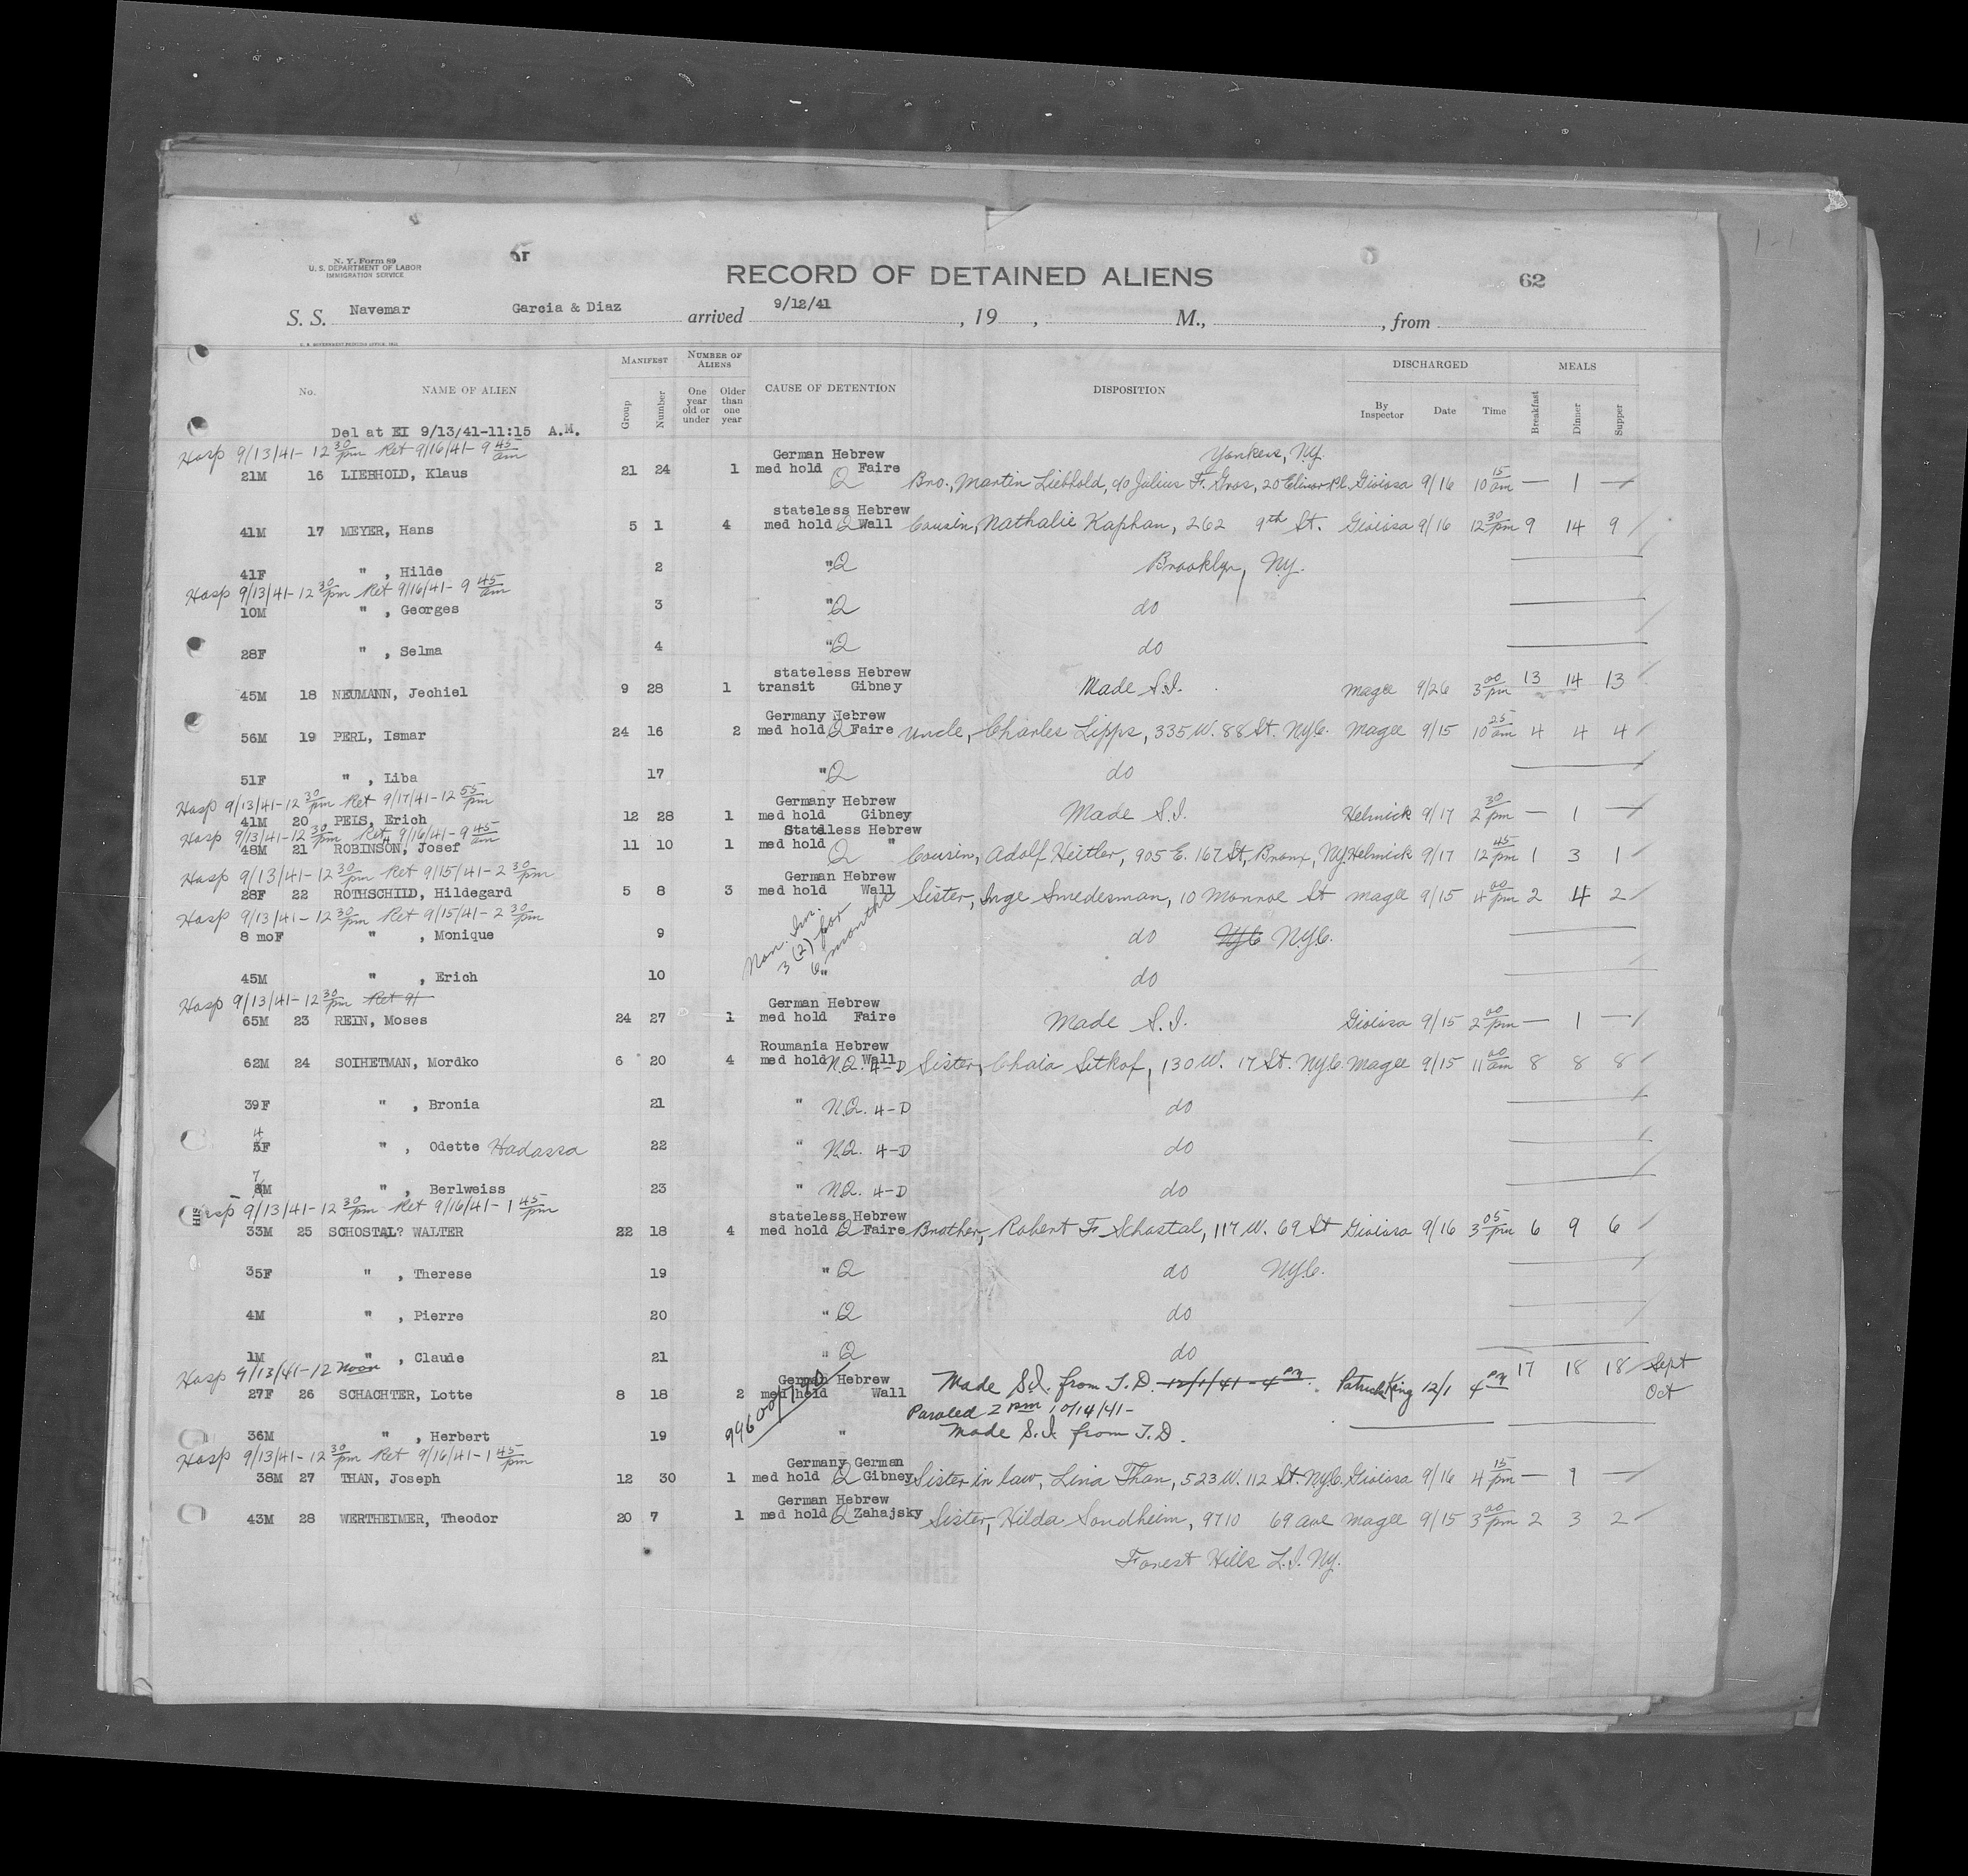 N. Y. Form 89
U. S. DEPARTMENT OF LABOR
IMMIGRATION SERVICE
RECORD OF DETAINED ALIENS 62
S. S. Navemar Garcia & Diaz arrived 9/12/41 , 19 , M., , from
MANIFEST NUMBER OF ALIENS DISCHARGED MEALS
No. NAME OF ALIEN Group Number One year old or under Older than one year CAUSE OF DETENTION DISPOSITION By Inspector Date Time Breakfast Dinner Supper
Del at EI 9/13/41-11:15 A.M.
Hosp 9/13/41-12 30 pm Ret 9/16/41-9 45 am German Hebrew Yonkers, N.Y.
21M 16 LIEBHOLD, Klaus 21 24 1 med hold Q Faire Bro., Martin Liebhold, c/o Julius F. Gros, 20 Elinor Pl. Gioiosa 9/16 10 15 am — 1 —
stateless Hebrew
41M 17 MEYER, Hans 5 1 4 med hold Q Wall Cousin, Nathalie Kaphan, 262 9th St. Gioiosa 9/16 12 30 pm 9 14 9
41F " , Hilde 2 " Q Brooklyn, N.Y.
Hosp 9/13/41-12 30 pm Ret 9/16/41-9 45 am
10M " , Georges 3 " Q do
28F " , Selma 4 " Q do
stateless Hebrew
45M 18 NEUMANN, Jechiel 9 28 1 transit Gibney Made S.I. Magee 9/26 3 00 pm 13 14 13
Germany Hebrew
56M 19 PERL, Ismar 24 16 2 med hold Q Faire Uncle, Charles Lipps, 335 W. 88 St. N.Y.C. Magee 9/15 10 25 am 4 4 4
51F " , Liba 17 " Q do
Hosp 9/13/41-12 30 pm Ret 9/17/41-12 55 pm Germany Hebrew
41M 20 PEIS, Erich 12 28 1 med hold Gibney Made S.I. Helmick 9/17 2 30 pm — 1 —
Hosp 9/13/41-12 30 pm Ret 9/16/41-9 45 am Stateless Hebrew
48M 21 ROBINSON, Josef 11 10 1 med hold Q " Cousin, Adolf Heitler, 905 E. 167 St, Bronx, N.Y. Helmick 9/17 12 45 pm 1 3 1
Hosp 9/13/41-12 30 pm Ret 9/15/41-2 30 pm German Hebrew
28F 22 ROTHSCHILD, Hildegard 5 8 3 med hold Wall Sister, Inge Smedesman, 10 Monroe St Magee 9/15 4 00 pm 2 4 2
Hosp 9/13/41-12 30 pm Ret 9/15/41-2 30 pm Non. Im. 3(2) for 6 months
8 moF " , Monique 9 do NYC N.Y.C.
45M " , Erich 10 " do
Hosp 9/13/41-12 30 pm Ret 9/ German Hebrew
65M 23 REIN, Moses 24 27 1 med hold Faire Made S.I. Gioiosa 9/15 2 00 pm — 1 —
Roumania Hebrew
62M 24 SOIHETMAN, Mordko 6 20 4 med hold N.Q. Wall 4-D Sister, Chaia Sitkof, 130 W. 17 St. N.Y.C. Magee 9/15 11 00 am 8 8 8
39F " , Bronia 21 " N.Q. 4-D do
4
5F " , Odette Hadassa 22 " N.Q. 4-D do
7
8M " , Berlweiss 23 " N.Q. 4-D do
Hosp 9/13/41-12 30 pm Ret 9/16/41-1 45 pm stateless Hebrew
33M 25 SCHOSTAL? WALTER 22 18 4 med hold Q Faire Brother, Robert F. Schostal, 117 W. 69 St Gioiosa 9/16 3 05 pm 6 9 6
35F " , Therese 19 " Q do N.Y.C.
4M " , Pierre 20 " Q do
1M " , Claude 21 " Q do
Hosp 9/13/41-12 Noon German Hebrew
27F 26 SCHACHTER, Lotte 8 18 2 med hold Wall Made S.I. from T.D. 12/1/41-4 PM. Patrick King 12/1 4 PM 17 18 18 Sept Oct
Paroled 2 pm 10/14/41-
36M " , Herbert 19 " Made S.I. from T.D.
Hosp 9/13/41-12 30 pm Ret 9/16/41-1 45 pm Germany German
38M 27 THAN, Joseph 12 30 1 med hold Q Gibney Sister in law, Lina Than, 523 W. 112 St. N.Y.C. Gioiosa 9/16 4 15 pm — 1 —
German Hebrew
43M 28 WERTHEIMER, Theodor 20 7 1 med hold Q Zahajsky Sister, Hilda Sondheim, 9710 69 Ave Magee 9/15 3 00 pm 2 3 2
Forest Hills L.I. N.Y.